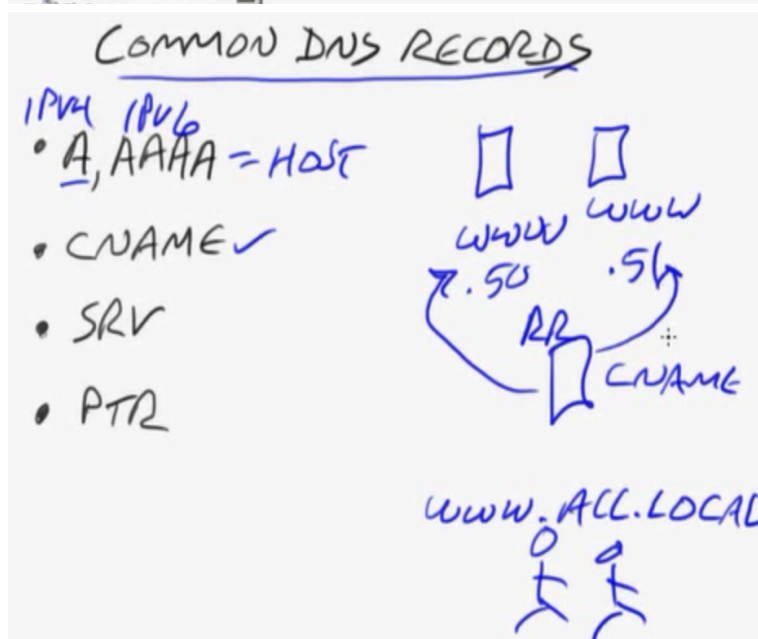 COMMON DNS RECORDS
IPV4 IPV6
• A, AAAA = HOST
• CNAME ✓
• SRV
• PTR
WWW WWW
.50 .51
RR
CNAME
WWW.ACC.LOCAL